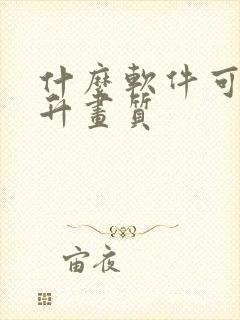 什麼軟件可
升畫質
宙夜